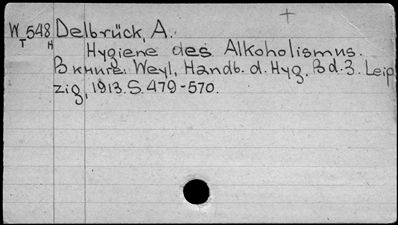 W 548 Delbrück, A.
T H Hygiene des Alkoholismus.
В книге: Weyl, Handb. d. Hyg. Bd. 3. Leip
zig, 1913. S. 479-570.